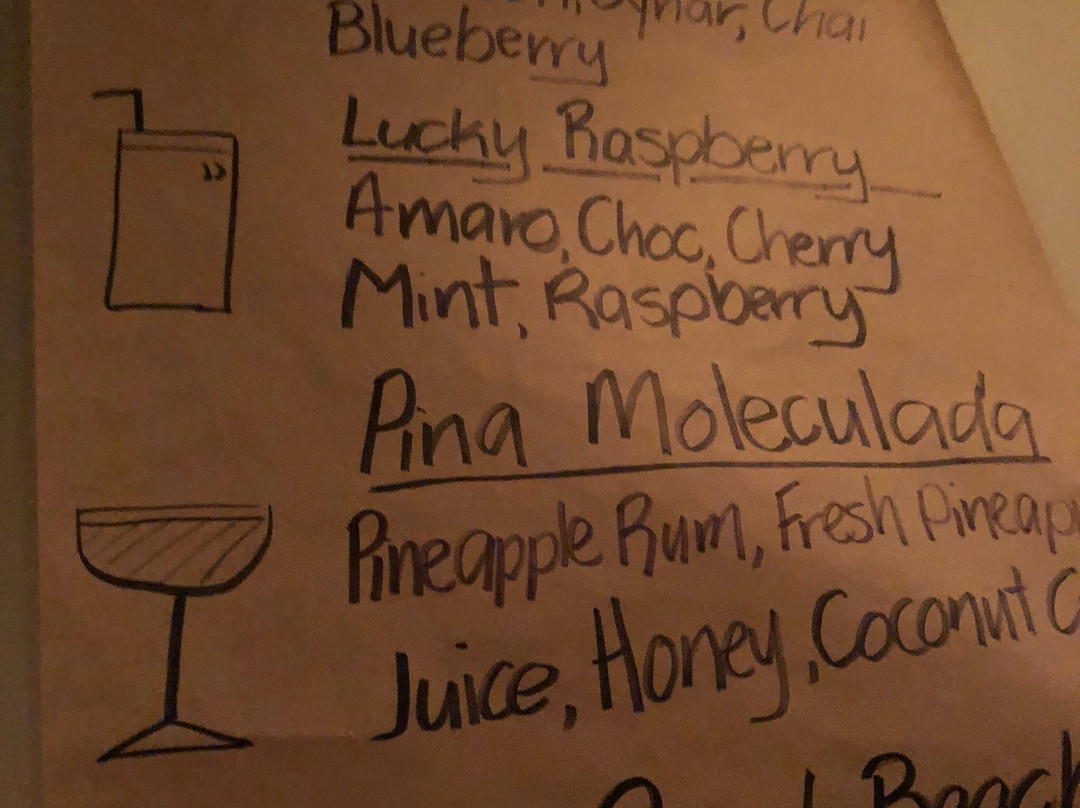 Cynar, Chai
Blueberry
Lucky Raspberry
Amaro, Choc, Cherry
Mint, Raspberry
Pina Moleculada
Pineapple Rum, Fresh Pineap
Juice, Honey, Coconut C